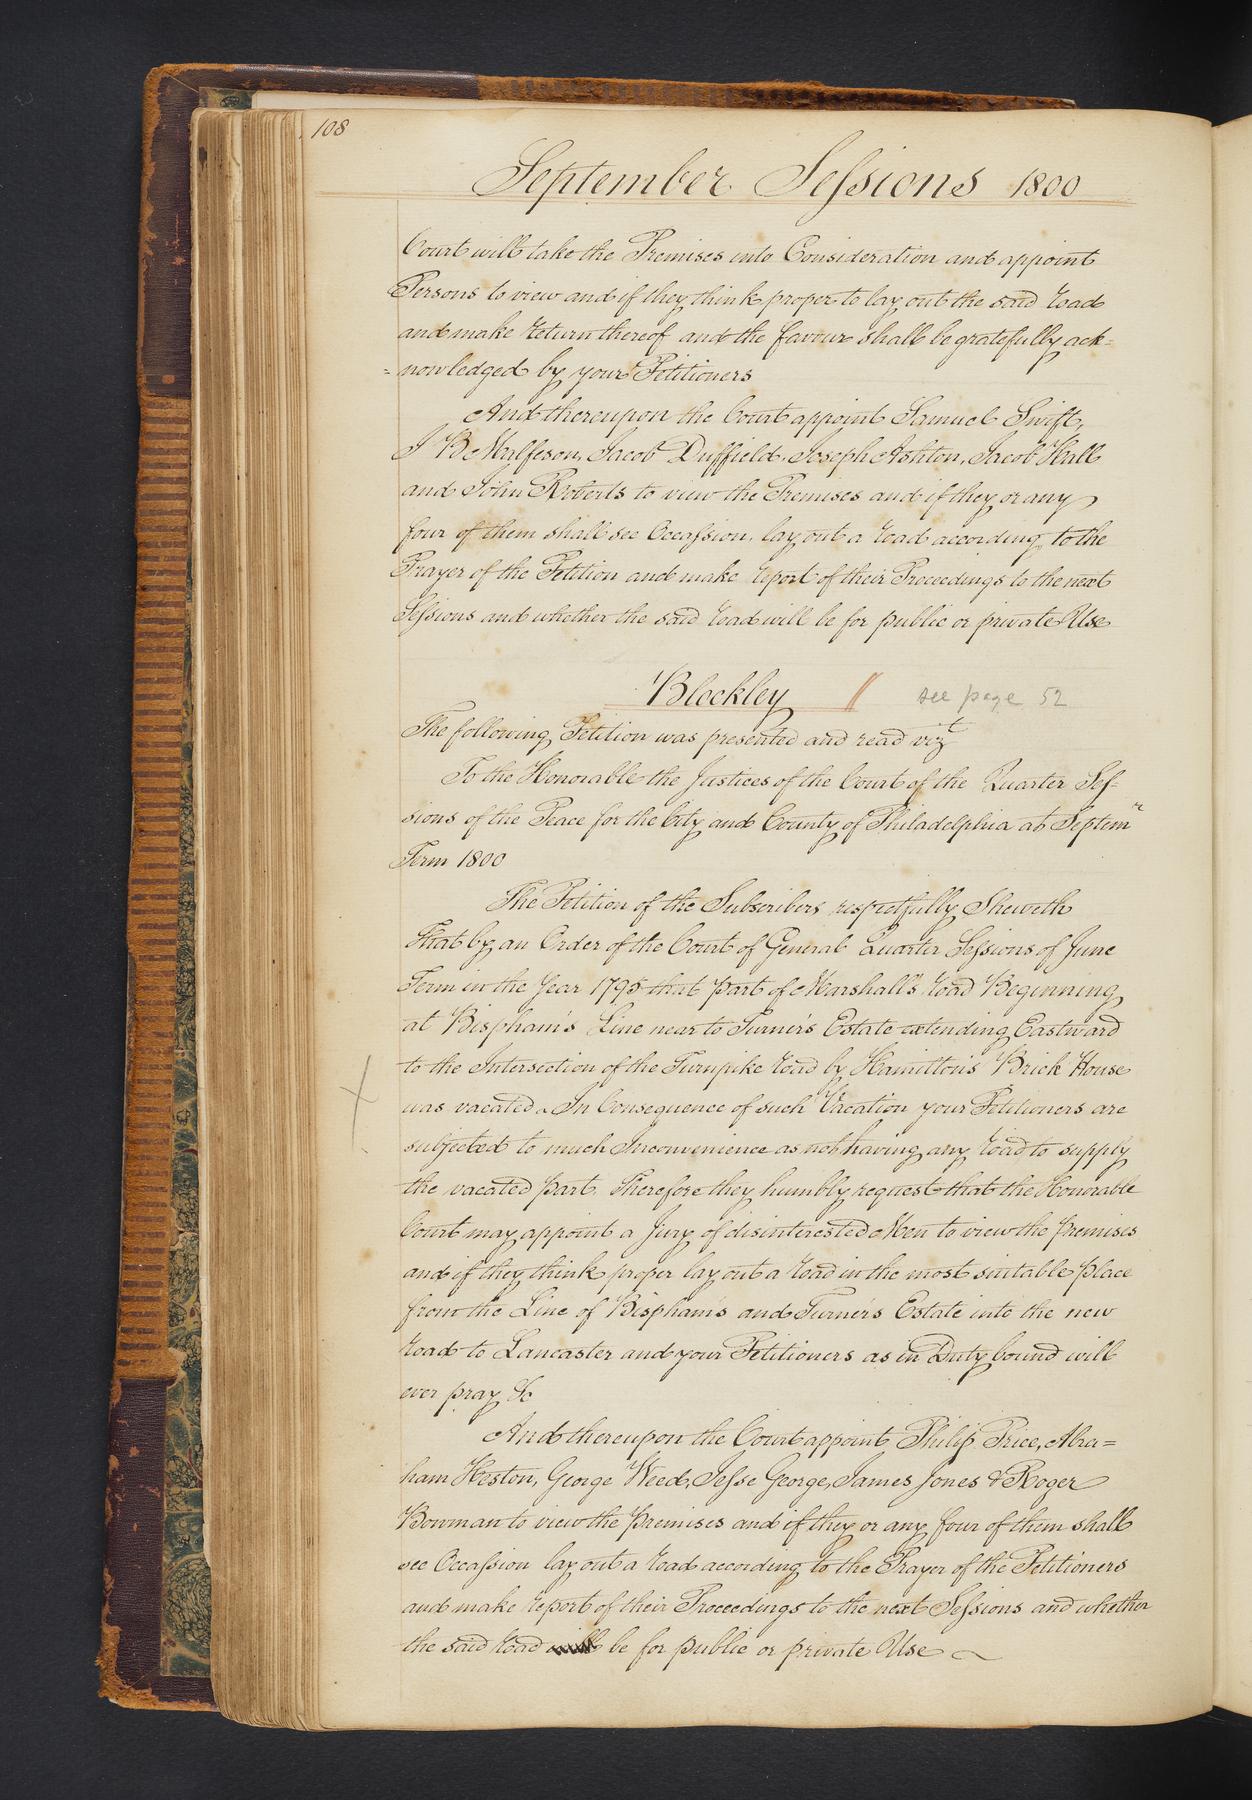 108
September Sessions 1800
Court will take the Premises into Consideration and appoint
Persons to view and if they think proper to lay out the said road
and make return thereof and the favour shall be gratefully ack=
=nowledged by your Petitioners
And thereupon the Court appoint Samuel Swift,
J B Malfeson, Jacob Duffield, Joseph Ashton, Jacob Hall
and John Roberts to view the Premises and if they or any
four of them shall see Occassion, lay out a road according to the
Prayer of the Petition and make report of their Proceedings to the next
Sessions and whether the said road will be for public or private Use
Blockley // see page 52
The following Petition was presented and read vizt
To the Honorable the Justices of the Court of the Quarter Ses-
sions of the Peace for the City and County of Philadelphia at Septemr
Term 1800
The Petition of the Subscribers respectfully Sheweth
That by an Order of the Court of General Quarter Sessions of June
Term in the Year 1795 that part of Marshall's road Beginning
at Bispham's Line near to Turner's Estate extending Eastward
to the Intersection of the Turnpike road by Hamilton's Brick House
X
was vacated. In Consequence of such Vacation your Petitioners are
subjected to much Inconvenience as not having any road to supply
the vacated part. Therefore they humbly request that the Honorable
Court may appoint a Jury of disinterested Men to view the premises
and if they think proper lay out a road in the most suitable place
from the Line of Bispham's and Turner's Estate into the new
road to Lancaster and your Petitioners as in Duty bound will
ever pray &c
And thereupon the Court appoint Philip Price, Abra=
ham Heston, George Weed, Jesse George, James Jones & Roger
Bowman to view the premises and if they or any four of them shall
see Occassion lay out a road according to the Prayer of the Petitioners
and make report of their Proceedings to the next Sessions and whether
the said road will be for public or private Use